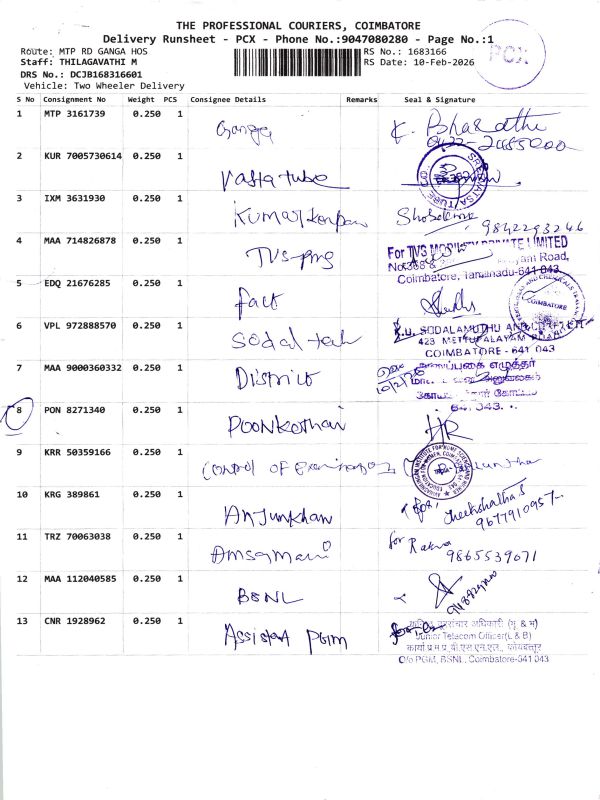 THE PROFESSIONAL COURIERS, COIMBATORE
Delivery Runsheet - PCX - Phone No.:9047080280 - Page No.:1
PCX
Route: MTP RD GANGA HOS
RS No.: 1683166
Staff: THILAGAVATHI M
RS Date: 10-Feb-2026
DRS No.: DCJB168316601
Vehicle: Two Wheeler Delivery
S No Consignment No Weight PCS Consignee Details Remarks Seal & Signature
1 MTP 3161739 0.250 1 Ganga K. Bharathi
0422-2485000
2 KUR 7005730614 0.250 1 Vastra tube
3 IXM 3631930 0.250 1 Kumar
9842293246
4 MAA 714826878 0.250 1 TVS-
For TVS MOBILITY PRIVATE LIMITED
Road,
Coimbatore, Tamilnadu-641 043
5 EDQ 21676285 0.250 1 fact
COIMBATORE
6 VPL 972888570 0.250 1 Sodal tech
K.U. SODALAMUTHU AND CO
423 METTUPALAYAM ROAD
COIMBATORE - 641 043
7 MAA 9000360332 0.250 1 District
10/2/26
641 043.
8 PON 8271340 0.250 1 Poonkothai HR
9 KRR 50359166 0.250 1 Control of Examination
10 KRG 389861 0.250 1 Anjunkhan
for,
Cheekshatha S
9677910957
11 TRZ 70063038 0.250 1 Amsamani for Rakna
9865539071
12 MAA 112040585 0.250 1 BSNL
13 CNR 1928962 0.250 1 Assistant PGM
दूरसंचार अधिकारी
Junior Telecom Officer(L & B)
O/o PGM, BSNL, Coimbatore-641 043